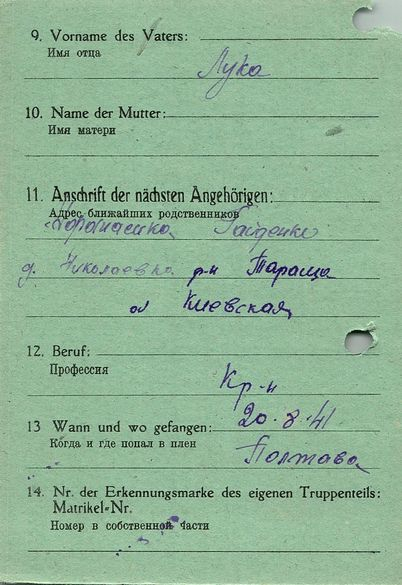 9. Vorname des Vaters:
Имя отца
Лука
10. Name der Mutter:
Имя матери
11. Anschrift der nächsten Angehörigen:
Адрес ближайших родственников
Гайденко
д. Николаевка р-н Тараща
Киевская
12. Beruf:
Профессия
Кр-н
13 Wann und wo gefangen: 20-8-41
Когда и где попал в плен
Полтава
14. Nr. der Erkennungsmarke des eigenen Truppenteils:
Matrikel-Nr.
Номер в собственной части